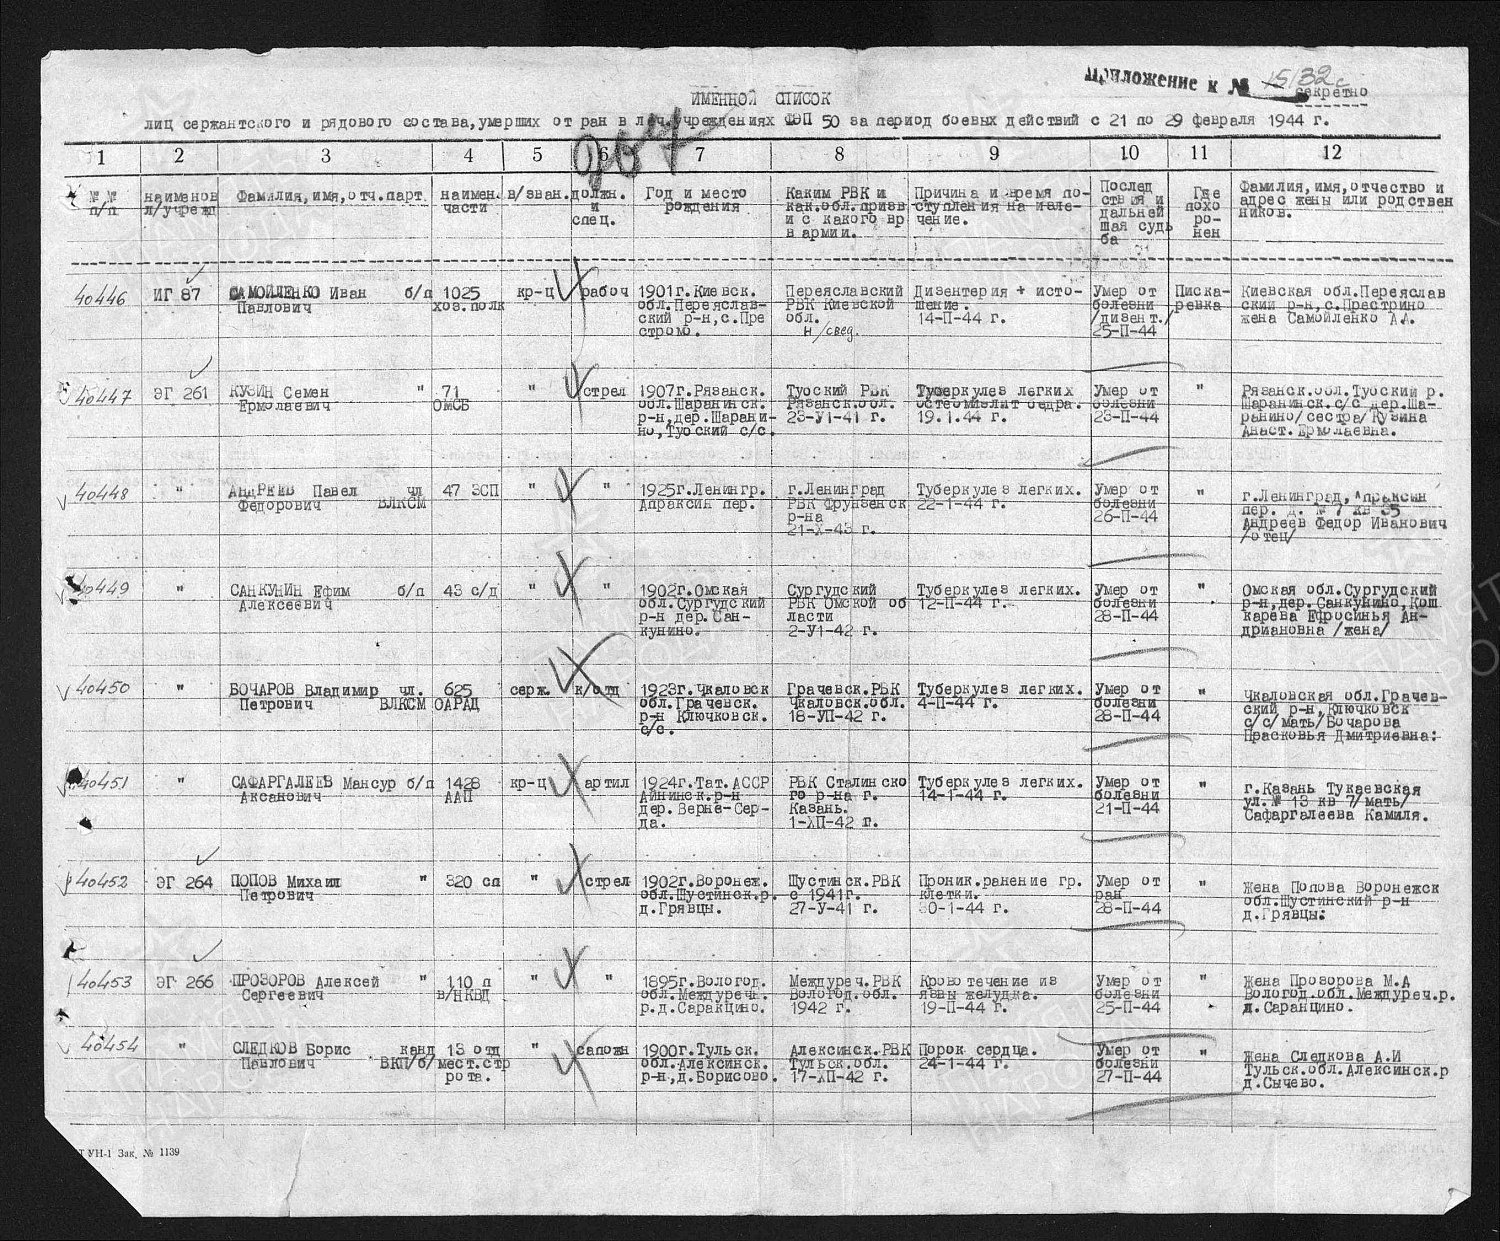 Приложение к № 15132с
секретно
ИМЕННОЙ СПИСОК
лиц сержантского и рядового состава, умерших от ран в леч.учреждениях ФЭП 50 за период боевых действий с 21 по 29 февраля 1944 г.
1 2 3 4 5 6 7 8 9 10 11 12
№ № п/п
наименов л/учрежд
Фамилия,имя,отч.парт.
наимен. части
в/зван.
должн. и спец.
Год и место рождения
Каким РВК и
кан.обл.призв
и с какого вр
в армии.
Причина и время по-
ступления на изле-
чение.
Послед
ствия и
дальней
шая судь
ба
Где
похо
ро-
нен
Фамилия,имя,отчество и
адрес жены или родствен
ников.
40446 ИГ 87 САМОЙЛЕНКО Иван б/п 1025 кр-ц рабоч 1901г.Киевск. Переяславский Дизентерия + исто- Умер от Писка- Киевская обл.Переяслав
Павлович хоз.полк обл.Переяслав- РВК Киевской щение. болезни ревка ский р-н,с.Престрино
ский р-н,с.Пре обл. 14-П-44 г. /дизент./ жена Самойленко А.А.
стромо. н/свед. 25-П-44
40447 ЭГ 261 КУЗИН Семен " 71 " стрел 1907г.Рязанск. Туоский РВК Туберкулез легких Умер от " Рязанск.обл.Туоский р.
Ермолаевич ОМСБ обл.Шаранинск. Рязанск.обл. остеомиэлит бедра. болезни Шаранинск.с/с дер.Ша-
р-н,дер.Шарани- 23-У1-41 г. 19.1.44 г. 23-П-44 ранино/сестра/Кузина
но,Туоский с/с. Анаст.Ермолаевна.
40448 " АНДРЕЕВ Павел чл 47 ЗСП " " 1925г.Ленингр. г.Ленинград Туберкулез легких. Умер от " г.Ленинград,Апраксин
Федорович ВЛКСМ Апраксин пер. РВК Фрунзенск 22-1-44 г. болезни пер. д. № 7 кв 35
р-на 26-П-44 Андреев Федор Иванович
21-Х-43 г. /отец/
40449 " САНКУНИН Ефим б/п 43 с/д " " 1902г.Омская Сургудский Туберкулез легких. Умер от " Омская обл.Сургудский
Алексеевич обл.Сургудский РВК Омской об 12-П-44 г. болезни р-н,дер.Санкунино,Кош
р-н дер.Сан- ласти 28-П-44 карева Ефросинья Ан-
кунино. 2-У1-42 г. дриановна /жена/
40450 " БОЧАРОВ Владимир чл. 625 серж. к/отд 1923г.Чкаловск Грачевск.РВК Туберкулез легких. Умер от " Чкаловская обл.Грачев-
Петрович ВЛКСМ ОАРАД обл.Грачевск. Чкаловск.обл. 4-П-44 г. болезни ский р-н,Ключковск
р-н Ключковск. 18-УП-42 г. 28-П-44 с/с/мать/Бочарова
с/с. Прасковья Дмитриевна:
40451 " САФАРГАЛЕЕВ Мансур б/п 1428 кр-ц артил 1924г.Тат.АССР РВК Сталинско Туберкулез легких. Умер от " г.Казань Тукаевская
Аксанович ААП Айнинск.р-н го р-на г. 14-1-44 г. болезни ул.№ 13 кв 7/мать/
дер. Верне-Сер- Казань. 21-П-44 Сафаргалеева Камиля.
да. 1-ХП-42 г.
40452 ЭГ 264 ПОПОВ Михаил " 320 сп " стрел 1902г.Воронеж. Щустинск.РВК Проник.ранение гр. Умер от " Жена Попова Воронежск
Петрович обл.Щустинск.р. с 1941г. клетки. ран обл.Щустинский р-н
д.Грявцы. 27-У-41 г. 30-1-44 г. 28-П-44 д.Грявцы:
40453 ЭГ 266 ПРОЗОРОВ Алексей " 110 п " " 1895г.Вологод. Междуреч.РВК Кровотечение из Умер от " Жена Прозорова М.А
Сергеевич в/НКВД обл.Междуречн. Вологод.обл. язвы желудка. болезни Вологод.обл.Междуреч.р.
р.д.Саракцино. 1942 г. 19-П-44 г. 25-П-44 д.Саранцино.
40454 " СЛЕДКОВ Борис канд 13 отд " сапожн 1900г.Тульск. Алексинск.РВК Порок сердца. Умер от " Жена Следкова А.И
Павлович ВКП/б/ мест.стр обл.Алексинск. Тульск.обл. 24-1-44 г. болезни Тульск.обл.Алексинск.р
рота. р-н,д.Борисово. 17-ХП-42 г. 27-П-44 д.Сычево.
УН-1 Зак. № 1139